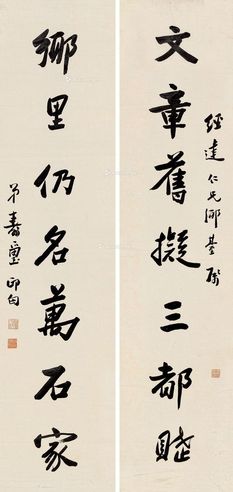 經達仁兄鄉臺屬
文章舊擬三都賦
鄉里仍名萬石家
弟壽璽邱